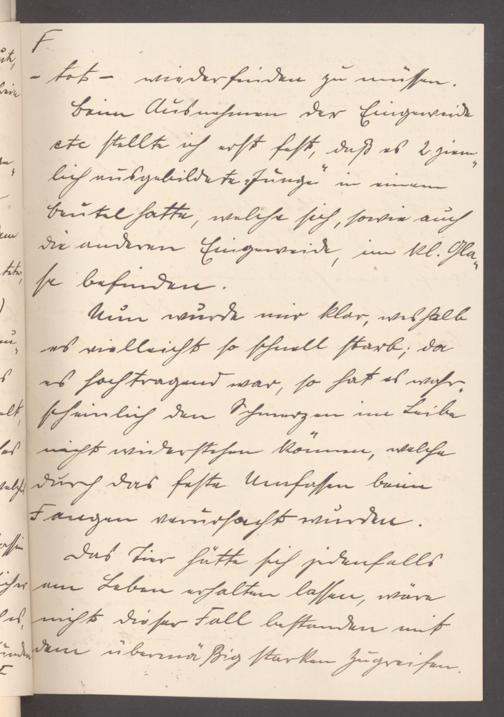 F
- tot - wiederfinden zu müssen.
Beim Ausnehmen der Eingeweide
etc stellte ich erst fest, daß es 2 ziem-
lich ausgebildete „Junge" in einem
Beutel hatte, welche sich, sowie auch
die anderen Eingeweide, im kl. Gla-
se befinden.
Nun wurde mir klar, weshalb
es vielleicht so schnell starb; da
es hochtragend war, so hat es wahr-
scheinlich den Schmerzen im Leibe
nicht widerstehen können, welche
durch das feste Umfassen beim
Fangen verursacht wurden.
Das Tier hätte sich jedenfalls
am Leben erhalten lassen, wäre
nicht dieser Fall bestanden mit
dem übermäßig starken Zugreifen.